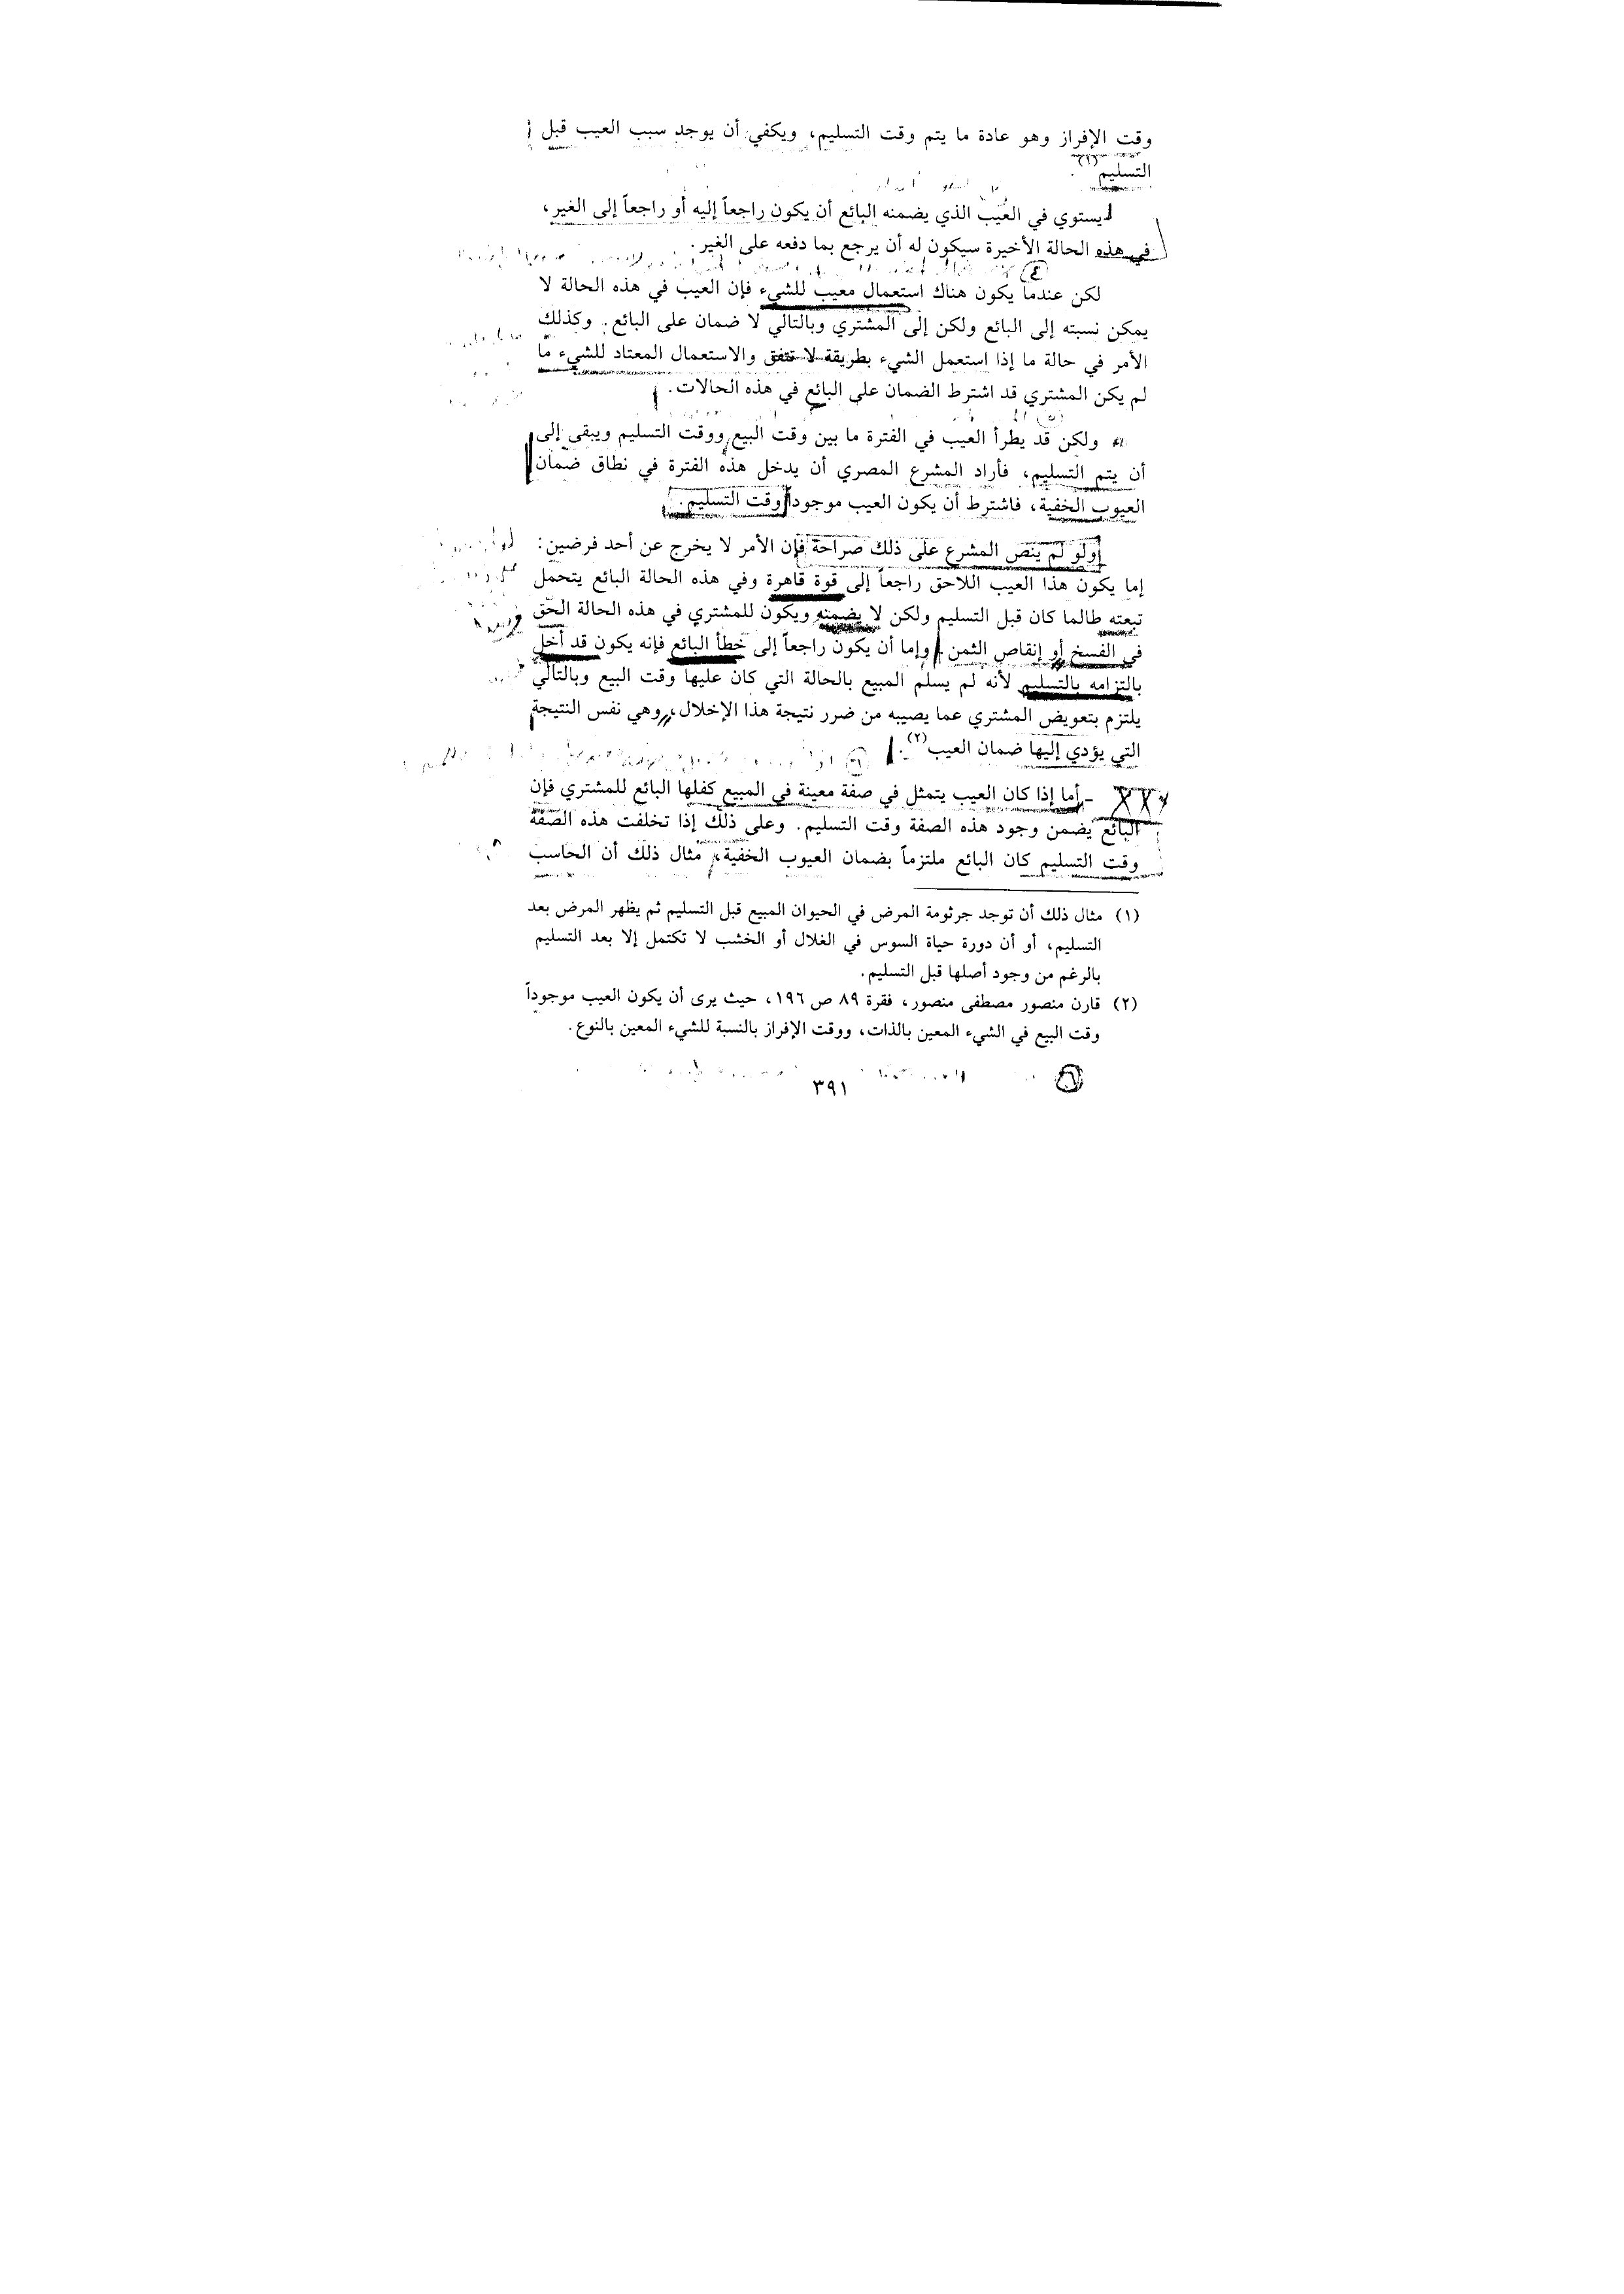 وقت الإفراز وهو عادة ما يتم وقت التسليم، ويكفي أن يوجد سبب العيب قبل
التسليم(١).
يستوي في العيب الذي يضمنه البائع أن يكون راجعاً إليه أو راجعاً إلى الغير،
في هذه الحالة الأخيرة سيكون له أن يرجع بما دفعه على الغير.
لكن عندما يكون هناك استعمال معيب للشيء فإن العيب في هذه الحالة لا
يمكن نسبته إلى البائع ولكن إلى المشتري وبالتالي لا ضمان على البائع. وكذلك
الأمر في حالة ما إذا استعمل الشيء بطريقة لا تتفق والاستعمال المعتاد للشيء ما
لم يكن المشتري قد اشترط الضمان على البائع في هذه الحالات.
ولكن قد يطرأ العيب في الفترة ما بين وقت البيع ووقت التسليم ويبقى إلى
أن يتم التسليم، فأراد المشرع المصري أن يدخل هذه الفترة في نطاق ضمان
العيوب الخفية، فاشترط أن يكون العيب موجوداً وقت التسليم.
ولو لم ينص المشرع على ذلك صراحة فإن الأمر لا يخرج عن أحد فرضين:
إما يكون هذا العيب اللاحق راجعاً إلى قوة قاهرة وفي هذه الحالة البائع يتحمل
تبعته طالما كان قبل التسليم ولكن لا يضمنه ويكون للمشتري في هذه الحالة الحق
في الفسخ أو إنقاص الثمن وإما أن يكون راجعاً إلى خطأ البائع فإنه يكون قد أخل
بالتزامه بالتسليم لأنه لم يسلم المبيع بالحالة التي كان عليها وقت البيع وبالتالي
يلتزم بتعويض المشتري عما يصيبه من ضرر نتيجة هذا الإخلال، وهي نفس النتيجة
التي يؤدي إليها ضمان العيب(٢).
- أما إذا كان العيب يتمثل في صفة معينة في المبيع كفلها البائع للمشتري فإن
البائع يضمن وجود هذه الصفة وقت التسليم. وعلى ذلك إذا تخلفت هذه الصفة
وقت التسليم كان البائع ملتزماً بضمان العيوب الخفية، مثال ذلك أن الحاسب
(١) مثال ذلك أن توجد جرثومة المرض في الحيوان المبيع قبل التسليم ثم يظهر المرض بعد
التسليم، أو أن دورة حياة السوس في الغلال أو الخشب لا تكتمل إلا بعد التسليم
بالرغم من وجود أصلها قبل التسليم.
(٢) قارن منصور مصطفى منصور، فقرة ٨٩ ص ١٩٦، حيث يرى أن يكون العيب موجوداً
وقت البيع في الشيء المعين بالذات، ووقت الإفراز بالنسبة للشيء المعين بالنوع.
٣٩١